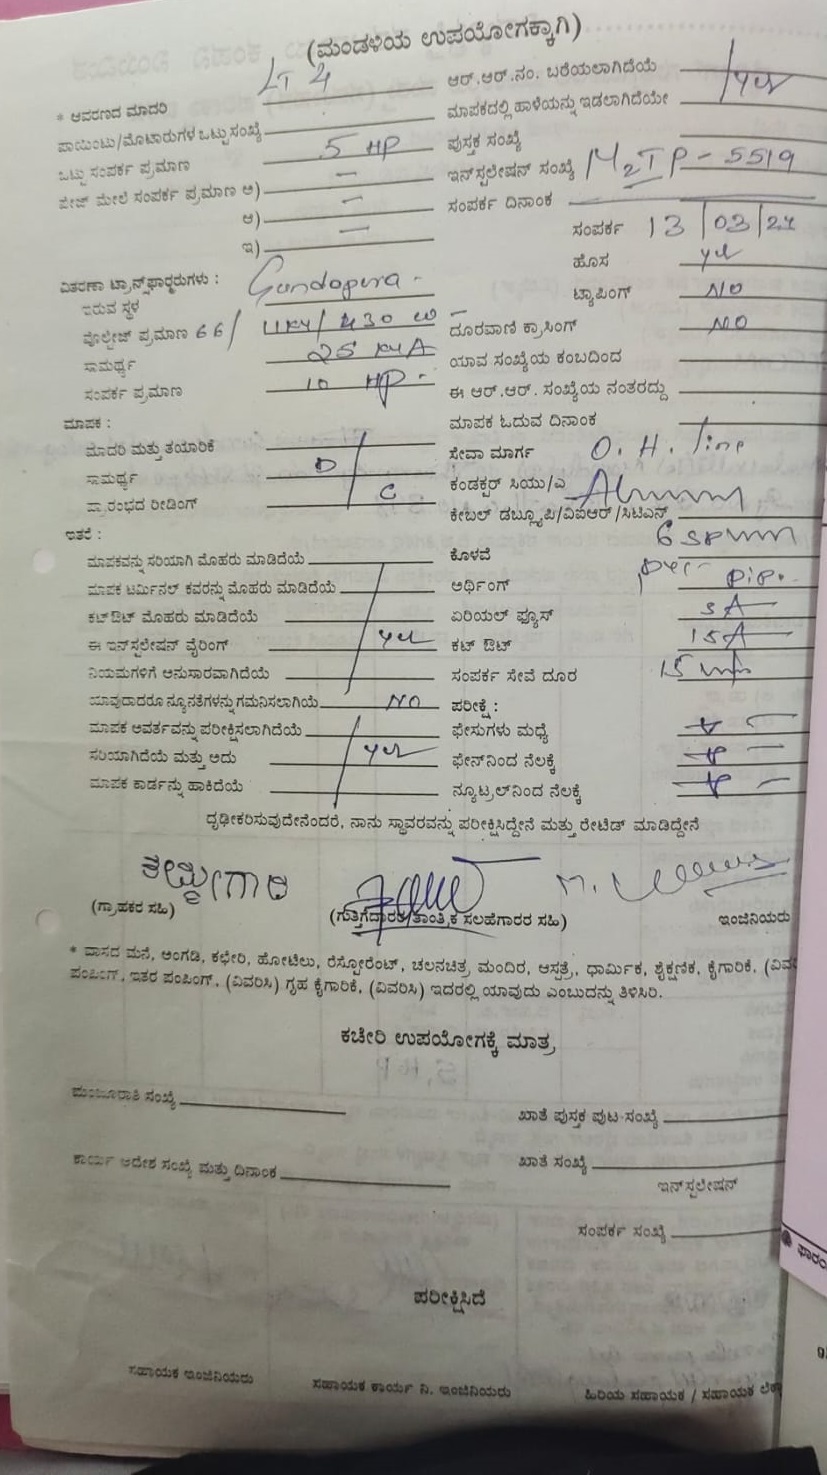 (ಮಂಡಳಿಯ ಉಪಯೋಗಕ್ಕಾಗಿ)
* ಆವರಣದ ಮಾದರಿ LT 4
ಪಾಯಿಂಟು/ಮೋಟಾರುಗಳ ಒಟ್ಟು ಸಂಖ್ಯೆ
ಒಟ್ಟು ಸಂಪರ್ಕ ಪ್ರಮಾಣ 5 HP
ಪೇಜ್ ಮೇಲೆ ಸಂಪರ್ಕ ಪ್ರಮಾಣ ಅ) —
ಆ) —
ಇ) —
ವಿತರಣಾ ಟ್ರಾನ್ಸ್‌ಫಾರ್ಮರುಗಳು :
ಇರುವ ಸ್ಥಳ Gundopura -
ವೋಲ್ಟೇಜ್ ಪ್ರಮಾಣ 66/ 11KV/430
ಸಾಮರ್ಥ್ಯ 25 KVA
ಸಂಪರ್ಕ ಪ್ರಮಾಣ 10 HP -
ಮಾಪಕ :
ಮಾದರಿ ಮತ್ತು ತಯಾರಿಕೆ
ಸಾಮರ್ಥ್ಯ D
ಪ್ರಾರಂಭದ ರೀಡಿಂಗ್ C
ಇತರೆ :
ಮಾಪಕವನ್ನು ಸರಿಯಾಗಿ ಮೊಹರು ಮಾಡಿದೆಯೆ
ಮಾಪಕ ಟರ್ಮಿನಲ್ ಕವರನ್ನು ಮೊಹರು ಮಾಡಿದೆಯೆ
ಕಟ್‌ಔಟ್ ಮೊಹರು ಮಾಡಿದೆಯೆ
ಈ ಇನ್‌ಸ್ಟಲೇಷನ್ ವೈರಿಂಗ್ yes
ನಿಯಮಗಳಿಗೆ ಅನುಸಾರವಾಗಿದೆಯೆ
ಯಾವುದಾದರೂ ನ್ಯೂನತೆಗಳನ್ನು ಗಮನಿಸಲಾಗಿಯೆ NO
ಮಾಪಕ ಆವರ್ತವನ್ನು ಪರೀಕ್ಷಿಸಲಾಗಿದೆಯೆ
ಸರಿಯಾಗಿದೆಯೆ ಮತ್ತು ಅದು yes
ಮಾಪಕ ಕಾರ್ಡನ್ನು ಹಾಕಿದೆಯೆ
ಆರ್.ಆರ್.ನಂ. ಬರೆಯಲಾಗಿದೆಯೆ yes
ಮಾಪಕದಲ್ಲಿ ಹಾಳೆಯನ್ನು ಇಡಲಾಗಿದೆಯೇ
ಪುಸ್ತಕ ಸಂಖ್ಯೆ
ಇನ್‌ಸ್ಟಲೇಷನ್ ಸಂಖ್ಯೆ M2TP-5519
ಸಂಪರ್ಕ ದಿನಾಂಕ
ಸಂಪರ್ಕ 13/03/21
ಹೊಸ yes
ಟ್ಯಾಪಿಂಗ್ NO
ದೂರವಾಣಿ ಕ್ರಾಸಿಂಗ್ NO
ಯಾವ ಸಂಖ್ಯೆಯ ಕಂಬದಿಂದ
ಈ ಆರ್.ಆರ್. ಸಂಖ್ಯೆಯ ನಂತರದ್ದು
ಮಾಪಕ ಓದುವ ದಿನಾಂಕ
ಸೇವಾ ಮಾರ್ಗ O. H. line
ಕಂಡಕ್ಟರ್ ಸಿಯು/ಎ
ಕೇಬಲ್ ಡಬ್ಲ್ಯೂಪಿ/ವಿಐಆರ್/ಸಿಟಿಎಸ್
ಕೊಳವೆ
ಅರ್ಥಿಂಗ್
ಏರಿಯಲ್ ಫ್ಯೂಸ್ 5A
ಕಟ್ ಔಟ್ 15A
ಸಂಪರ್ಕ ಸೇವೆ ದೂರ 15
ಪರೀಕ್ಷೆ :
ಫೇಸುಗಳು ಮಧ್ಯೆ
ಫೇಸ್‌ನಿಂದ ನೆಲಕ್ಕೆ
ನ್ಯೂಟ್ರಲ್‌ನಿಂದ ನೆಲಕ್ಕೆ
ದೃಢೀಕರಿಸುವುದೇನೆಂದರೆ, ನಾನು ಸ್ಥಾವರವನ್ನು ಪರೀಕ್ಷಿಸಿದ್ದೇನೆ ಮತ್ತು ರೇಟಿಡ್ ಮಾಡಿದ್ದೇನೆ
(ಗ್ರಾಹಕರ ಸಹಿ) (ಗುತ್ತಿಗೆದಾರರ/ತಾಂತ್ರಿಕ ಸಲಹೆಗಾರರ ಸಹಿ) ಇಂಜಿನಿಯರು
* ವಾಸದ ಮನೆ, ಅಂಗಡಿ, ಕಛೇರಿ, ಹೋಟೆಲು, ರೆಸ್ಟೋರೆಂಟ್, ಚಲನಚಿತ್ರ ಮಂದಿರ, ಆಸ್ಪತ್ರೆ, ಧಾರ್ಮಿಕ, ಶೈಕ್ಷಣಿಕ, ಕೈಗಾರಿಕೆ, (ವಿವ
ಪಂಪಿಂಗ್, ಇತರ ಪಂಪಿಂಗ್, (ವಿವರಿಸಿ) ಗೃಹ ಕೈಗಾರಿಕೆ, (ವಿವರಿಸಿ) ಇದರಲ್ಲಿ ಯಾವುದು ಎಂಬುದನ್ನು ತಿಳಿಸಿರಿ.
ಕಚೇರಿ ಉಪಯೋಗಕ್ಕೆ ಮಾತ್ರ
ಮಂಜೂರಾತಿ ಸಂಖ್ಯೆ
ಖಾತೆ ಪುಸ್ತಕ ಪುಟ ಸಂಖ್ಯೆ
ಕಾರ್ಯ ಆದೇಶ ಸಂಖ್ಯೆ ಮತ್ತು ದಿನಾಂಕ
ಖಾತೆ ಸಂಖ್ಯೆ
ಇನ್‌ಸ್ಟಲೇಷನ್
ಸಂಪರ್ಕ ಸಂಖ್ಯೆ
ಪರೀಕ್ಷಿಸಿದೆ
ಸಹಾಯಕ ಇಂಜಿನಿಯರು ಸಹಾಯಕ ಕಾರ್ಯ ನಿ. ಇಂಜಿನಿಯರು ಹಿರಿಯ ಸಹಾಯಕ / ಸಹಾಯಕ ಲೆಕ್ಕ